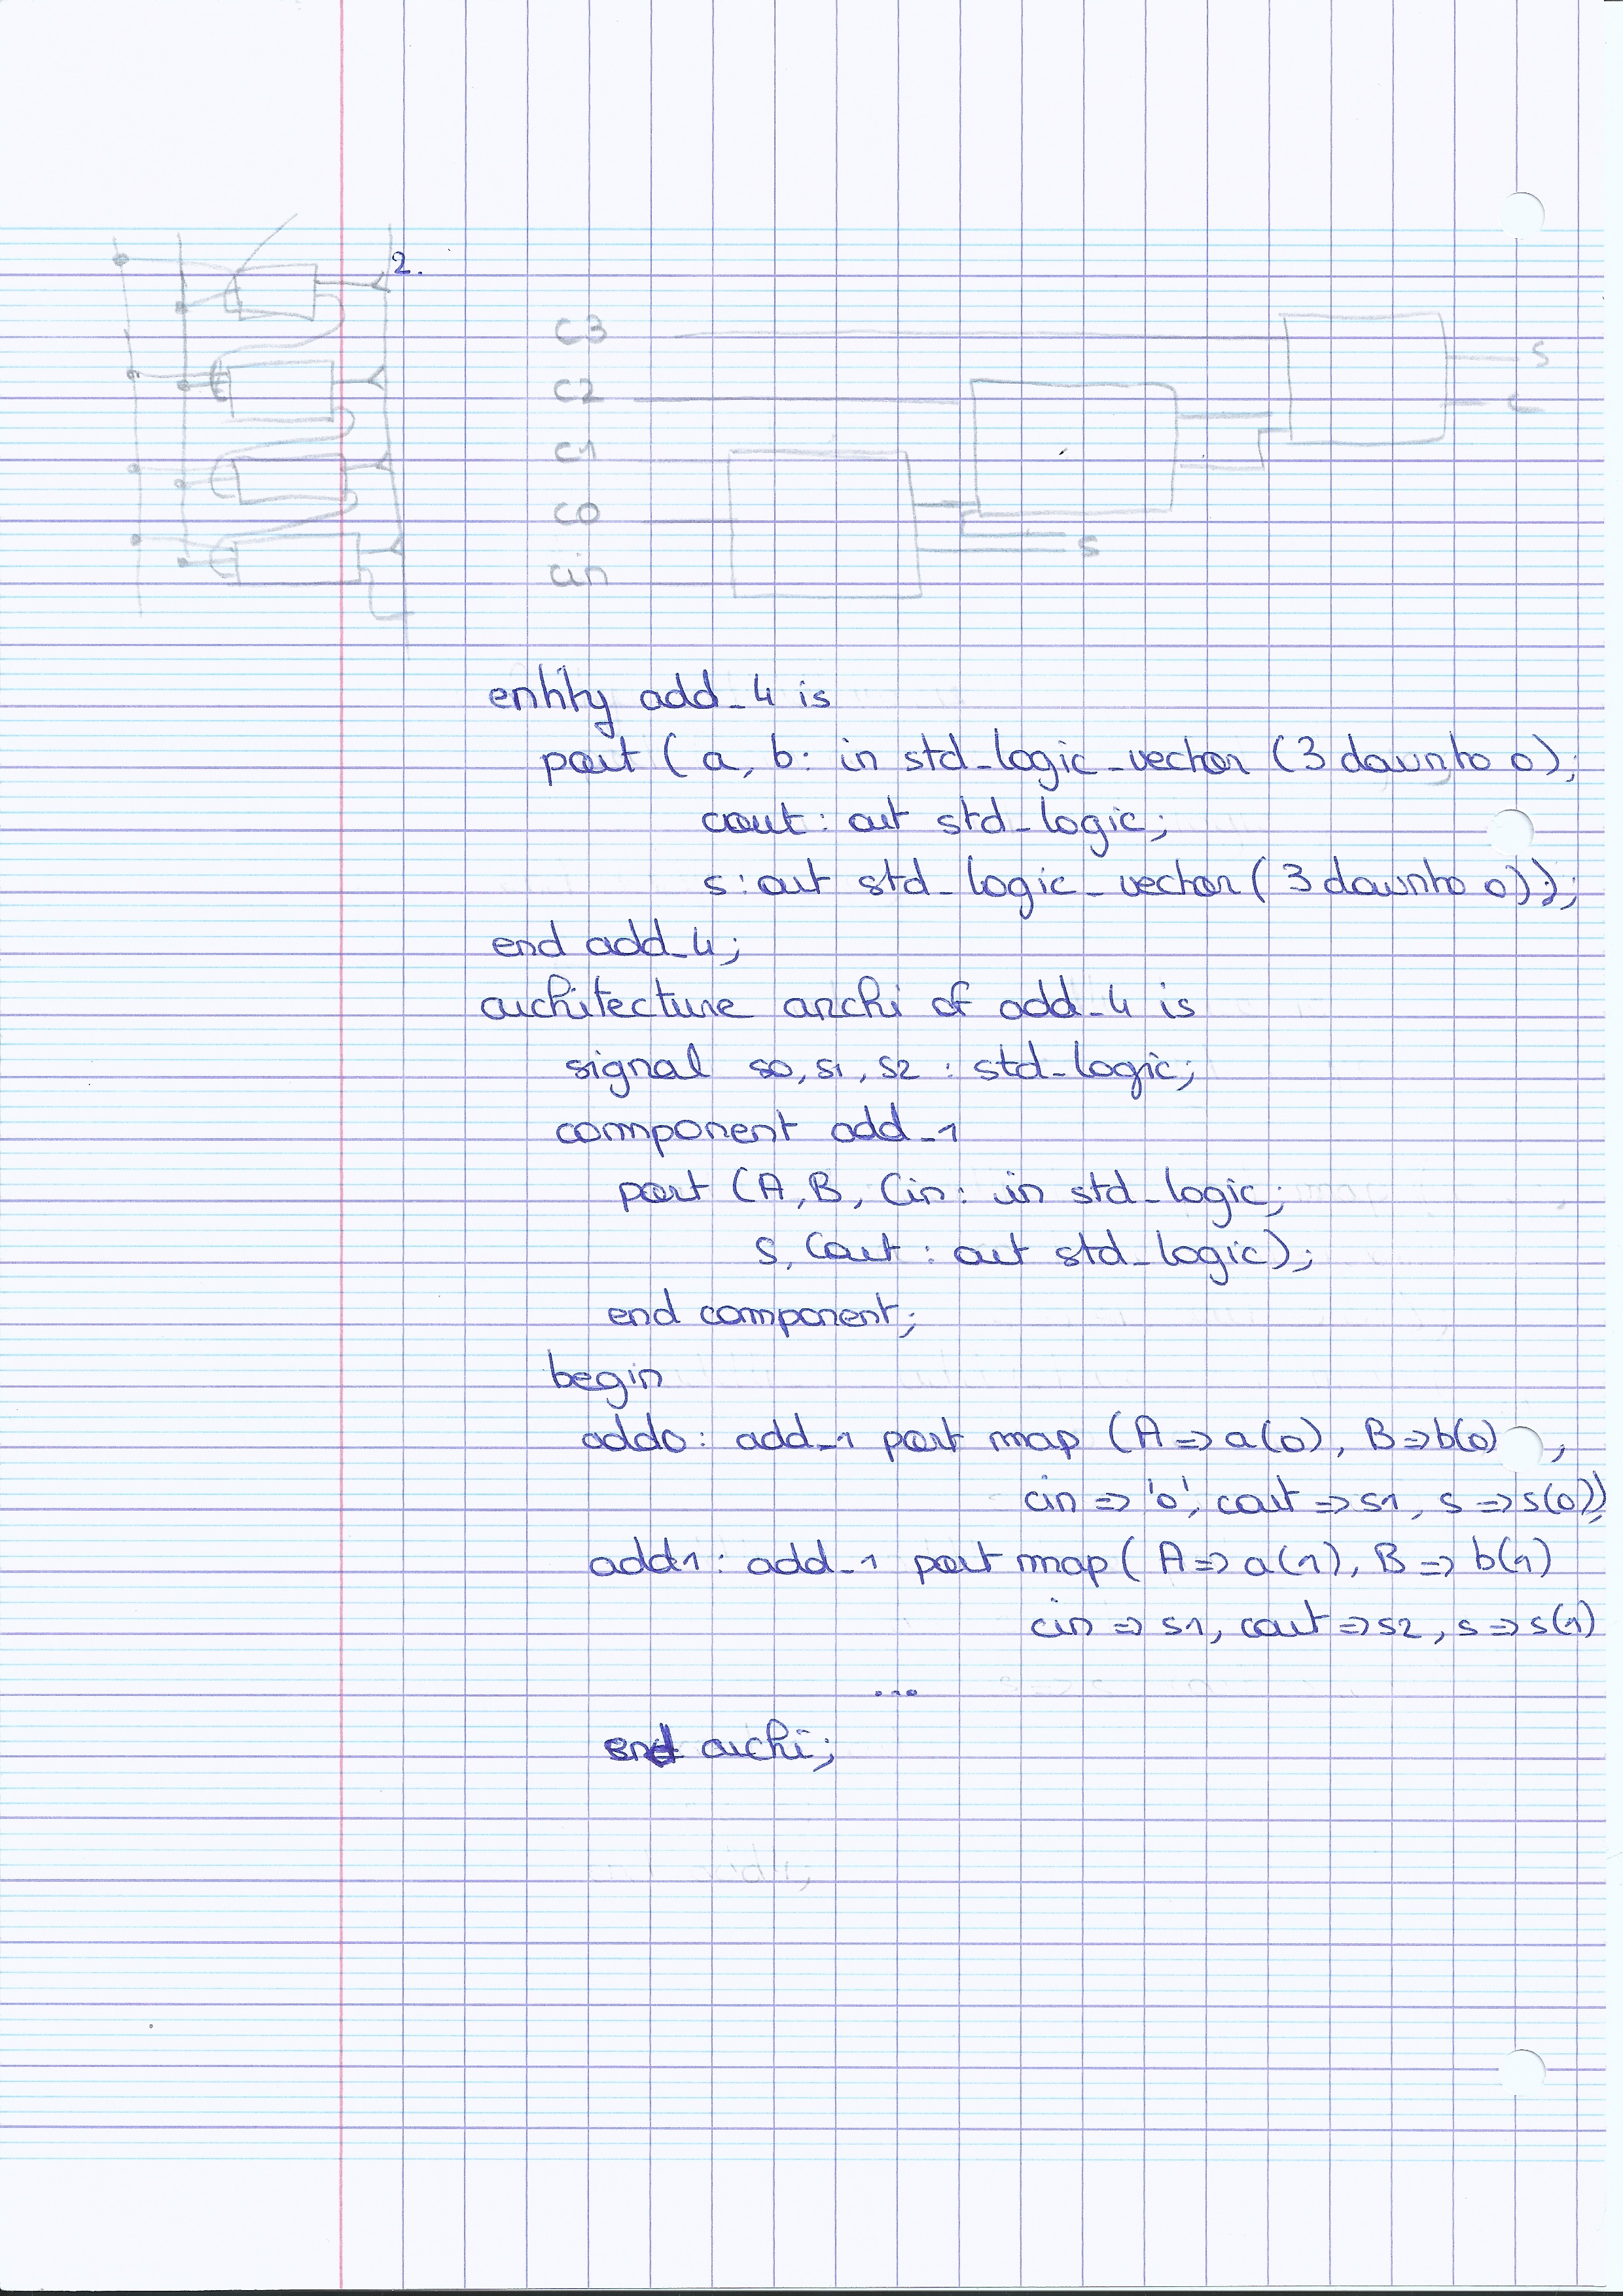 2.
C3
S
C2
C
C1
C0
S
cin
entity add_4 is
port ( a, b : in std_logic_vector (3 downto 0);
cout : out std_logic;
s : out std_logic_vector (3 downto 0));
end add_4;
architecture archi of add_4 is
signal s0, s1, s2 : std_logic;
component add_1
port (A, B, Cin : in std_logic;
S, Cout : out std_logic);
end component;
begin
add0 : add_1 port map (A => a(0), B => b(0) ,
cin => '0', cout => s1, s => s(0));
add1 : add_1 port map ( A => a(1), B => b(1)
cin => s1, cout => s2, s => s(1)
...
end archi;